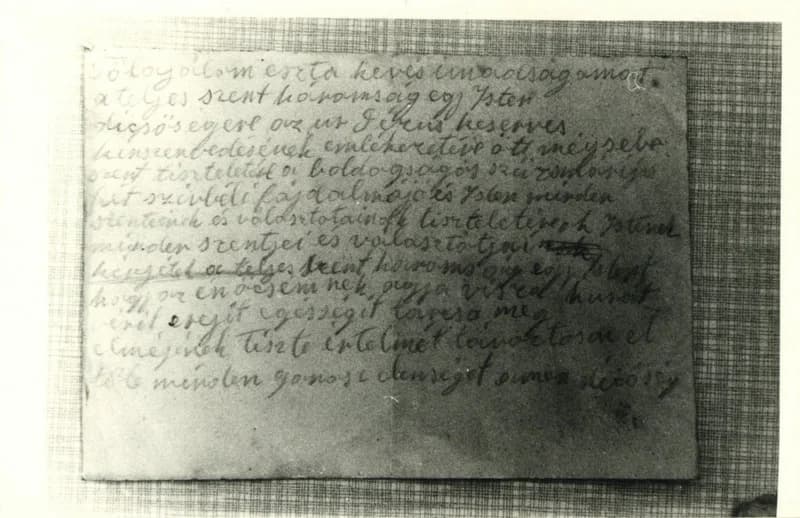 fölajálom eszta kevés imádságamat
a teljes szent háromság egy Isten
dicsőségére az ur Jézus keserves
kinszenvedésének emlékezetére öt mélyseba
szent tiszteletére a boldogságos szűz
hét szivbéli fájdalmájo és Isten minden
szenteinek és választotainak tiszteletére h Istenek
minden szentjei és választotjai
kérjétek a teljes szent háromság egy Istent
hogy az én öcsémnek agya visza husát
vérét erejit egésségit tarcsa meg
elméjének tiszte értelmét távoztosa el
minden gonosz elenségét ámen dicsőség